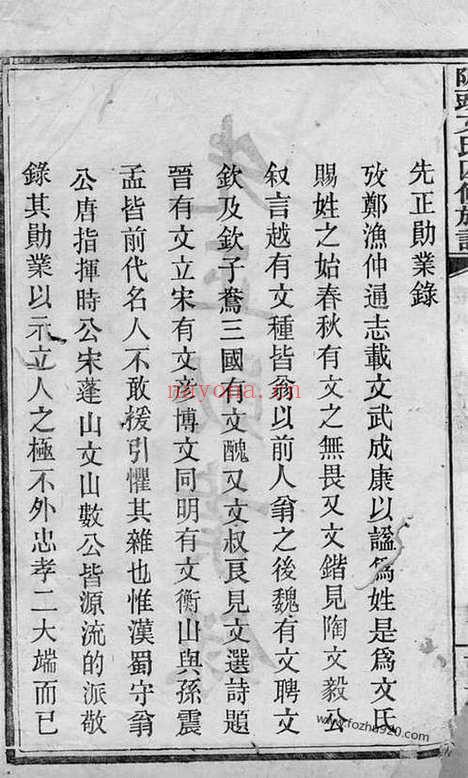 文氏四修族譜
先正勛業錄
攷鄭漁仲通志載文武成康以謚爲姓是爲文氏
賜姓之始春秋有文之無畏又文鍇見陶文毅公
叙言越有文種皆翁以前人翁之後魏有文聘文
欽及欽子鴦三國有文醜又文叔良見文選詩題
晉有文立宋有文彥博文同明有文衡山與孫震
孟皆前代名人不敢援引懼其雜也惟漢蜀守翁
公唐指揮時公宋蓬山文山數公皆源流的派敬
錄其勛業以示立人之極不外忠孝二大端而已
nayona.cn
www.fozhu920.com